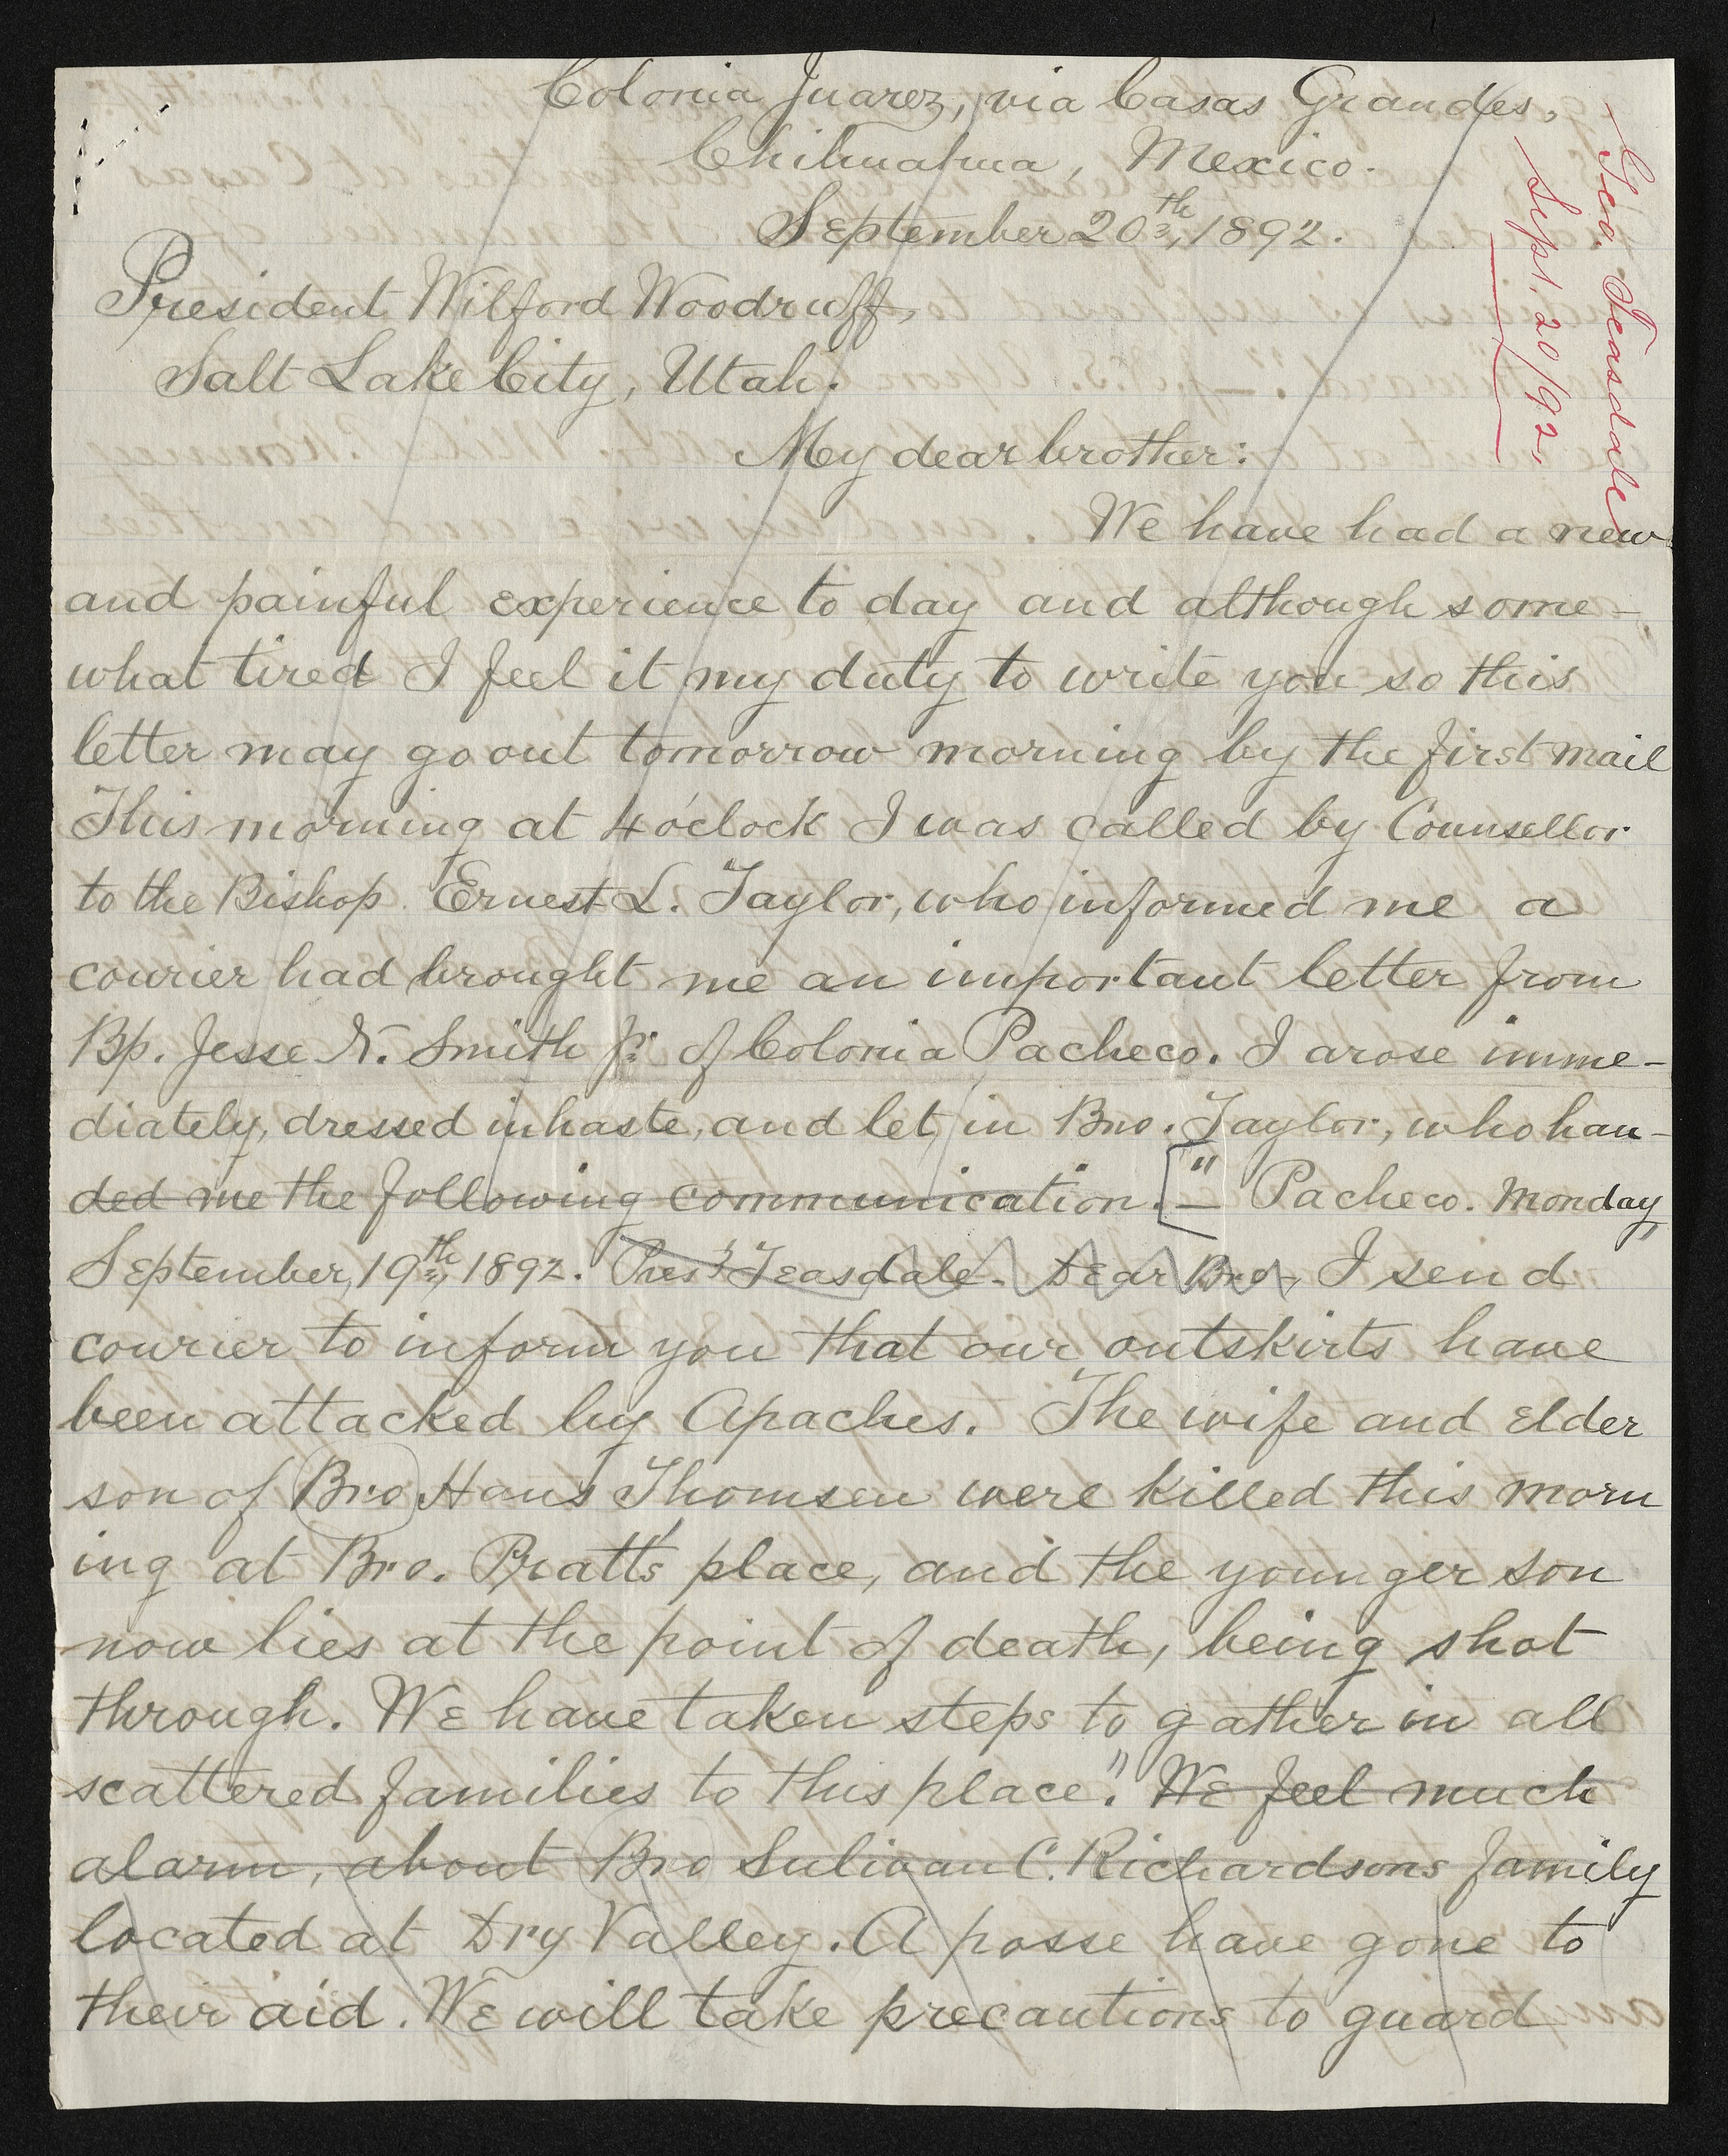 Colonia Juarez, via Casas Grandes,
Chihuahua, Mexico.
September 20th, 1892.
Geo. Teasdale
Sept. 20/92.
President Wilford Woodruff,
Salt Lake City, Utah.
My dear brother:
We have had a new
and painful experience to day and although some-
what tired I feel it my duty to write you so this
letter may go out tomorrow morning by the first mail
This morning at 4 o'clock I was called by Counsellor
to the Bishop Ernest L. Taylor, who informed me a
courier had brought me an important letter from
Bp. Jesse N. Smith Jr. of Colonia Pacheco. I arose imme-
diately, dressed in haste, and let in Bro. Taylor, who han-
ded me the following communication. [" — Pacheco. Monday,
September, 19th, 1892. Prest Teasdale - Dear Bro-, "I send
courier to inform you that our outskirts have
been attacked by Apaches. The wife and elder
son of Bro Hans Thomsen were killed this morn
ing at Bro. Pratt's place, and the younger son
now lies at the point of death, being shot
through. We have taken steps to gather in all
scattered families to this place." We feel much
alarm, about Bro Sulivan C. Richardsons family
located at Dry Valley. A posse have gone to
their aid. We will take precautions to guard